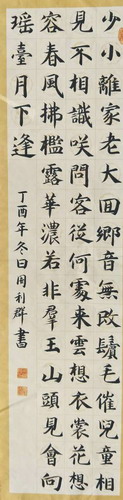 少小離家老大回鄉音無改鬢毛催兒童相
見不相識咲問客從何處來雲想衣裳花想
容春風拂檻露華濃若非羣玉山頭見會向
瑤臺月下逢
丁酉年冬日周利群書